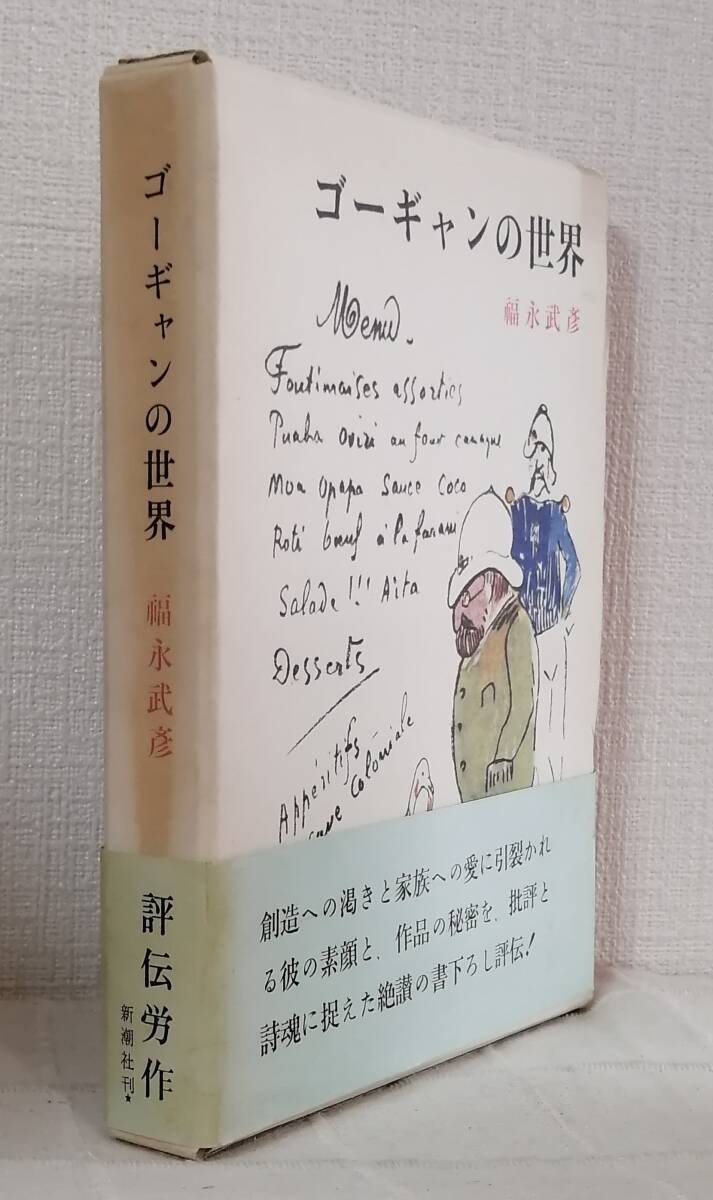 ゴーギャンの世界
福永武彦
評伝労作
新潮社刊★
ゴーギャンの世界
福永武彦
Menu.
Foutimaises assorties
Puaha oviri au four canaque
Moa Opapa Sauce Coco
Roti bœuf à la farani
Salade !!! Aita
Desserts
Appéritifs
Cave Coloniale
創造への渇きと家族への愛に引裂かれ
る彼の素顔と、作品の秘密を、批評と
詩魂に捉えた絶讃の書下ろし評伝！